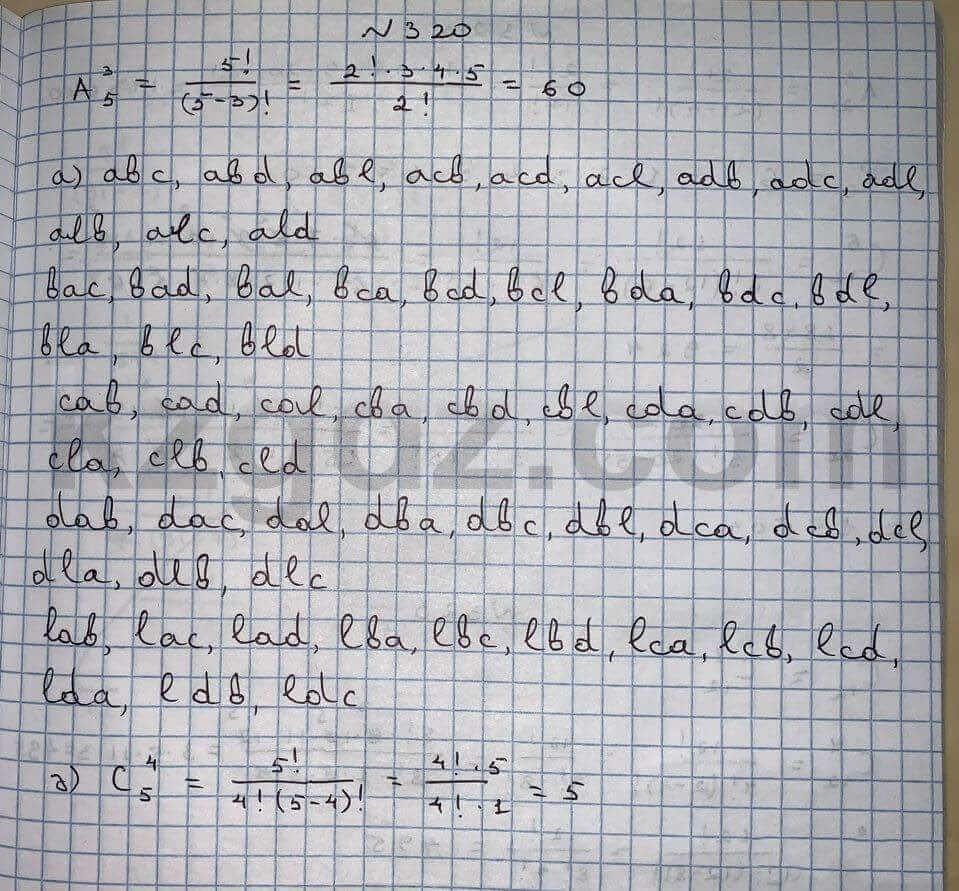 №320
A₅³ = 5!/(5-3)! = 2!·3·4·5/2! = 60
a) abc, abd, abe, acb, acd, ace, adb, adc, ade,
aeb, aec, aed
bac, bad, bae, bca, bcd, bce, bda, bdc, bde,
bea, bec, bed
cab, cad, cae, cba, cbd, cbe, cda, cdb, cde,
cea, ceb, ced
dab, dac, dae, dba, dbc, dbe, dca, dcb, dce,
dea, deb, dec
eab, eac, ead, eba, ebc, ebd, eca, ecb, ecd,
eda, edb, edc
г) C₅⁴ = 5!/4!(5-4)! = 4!·5/4!·1 = 5